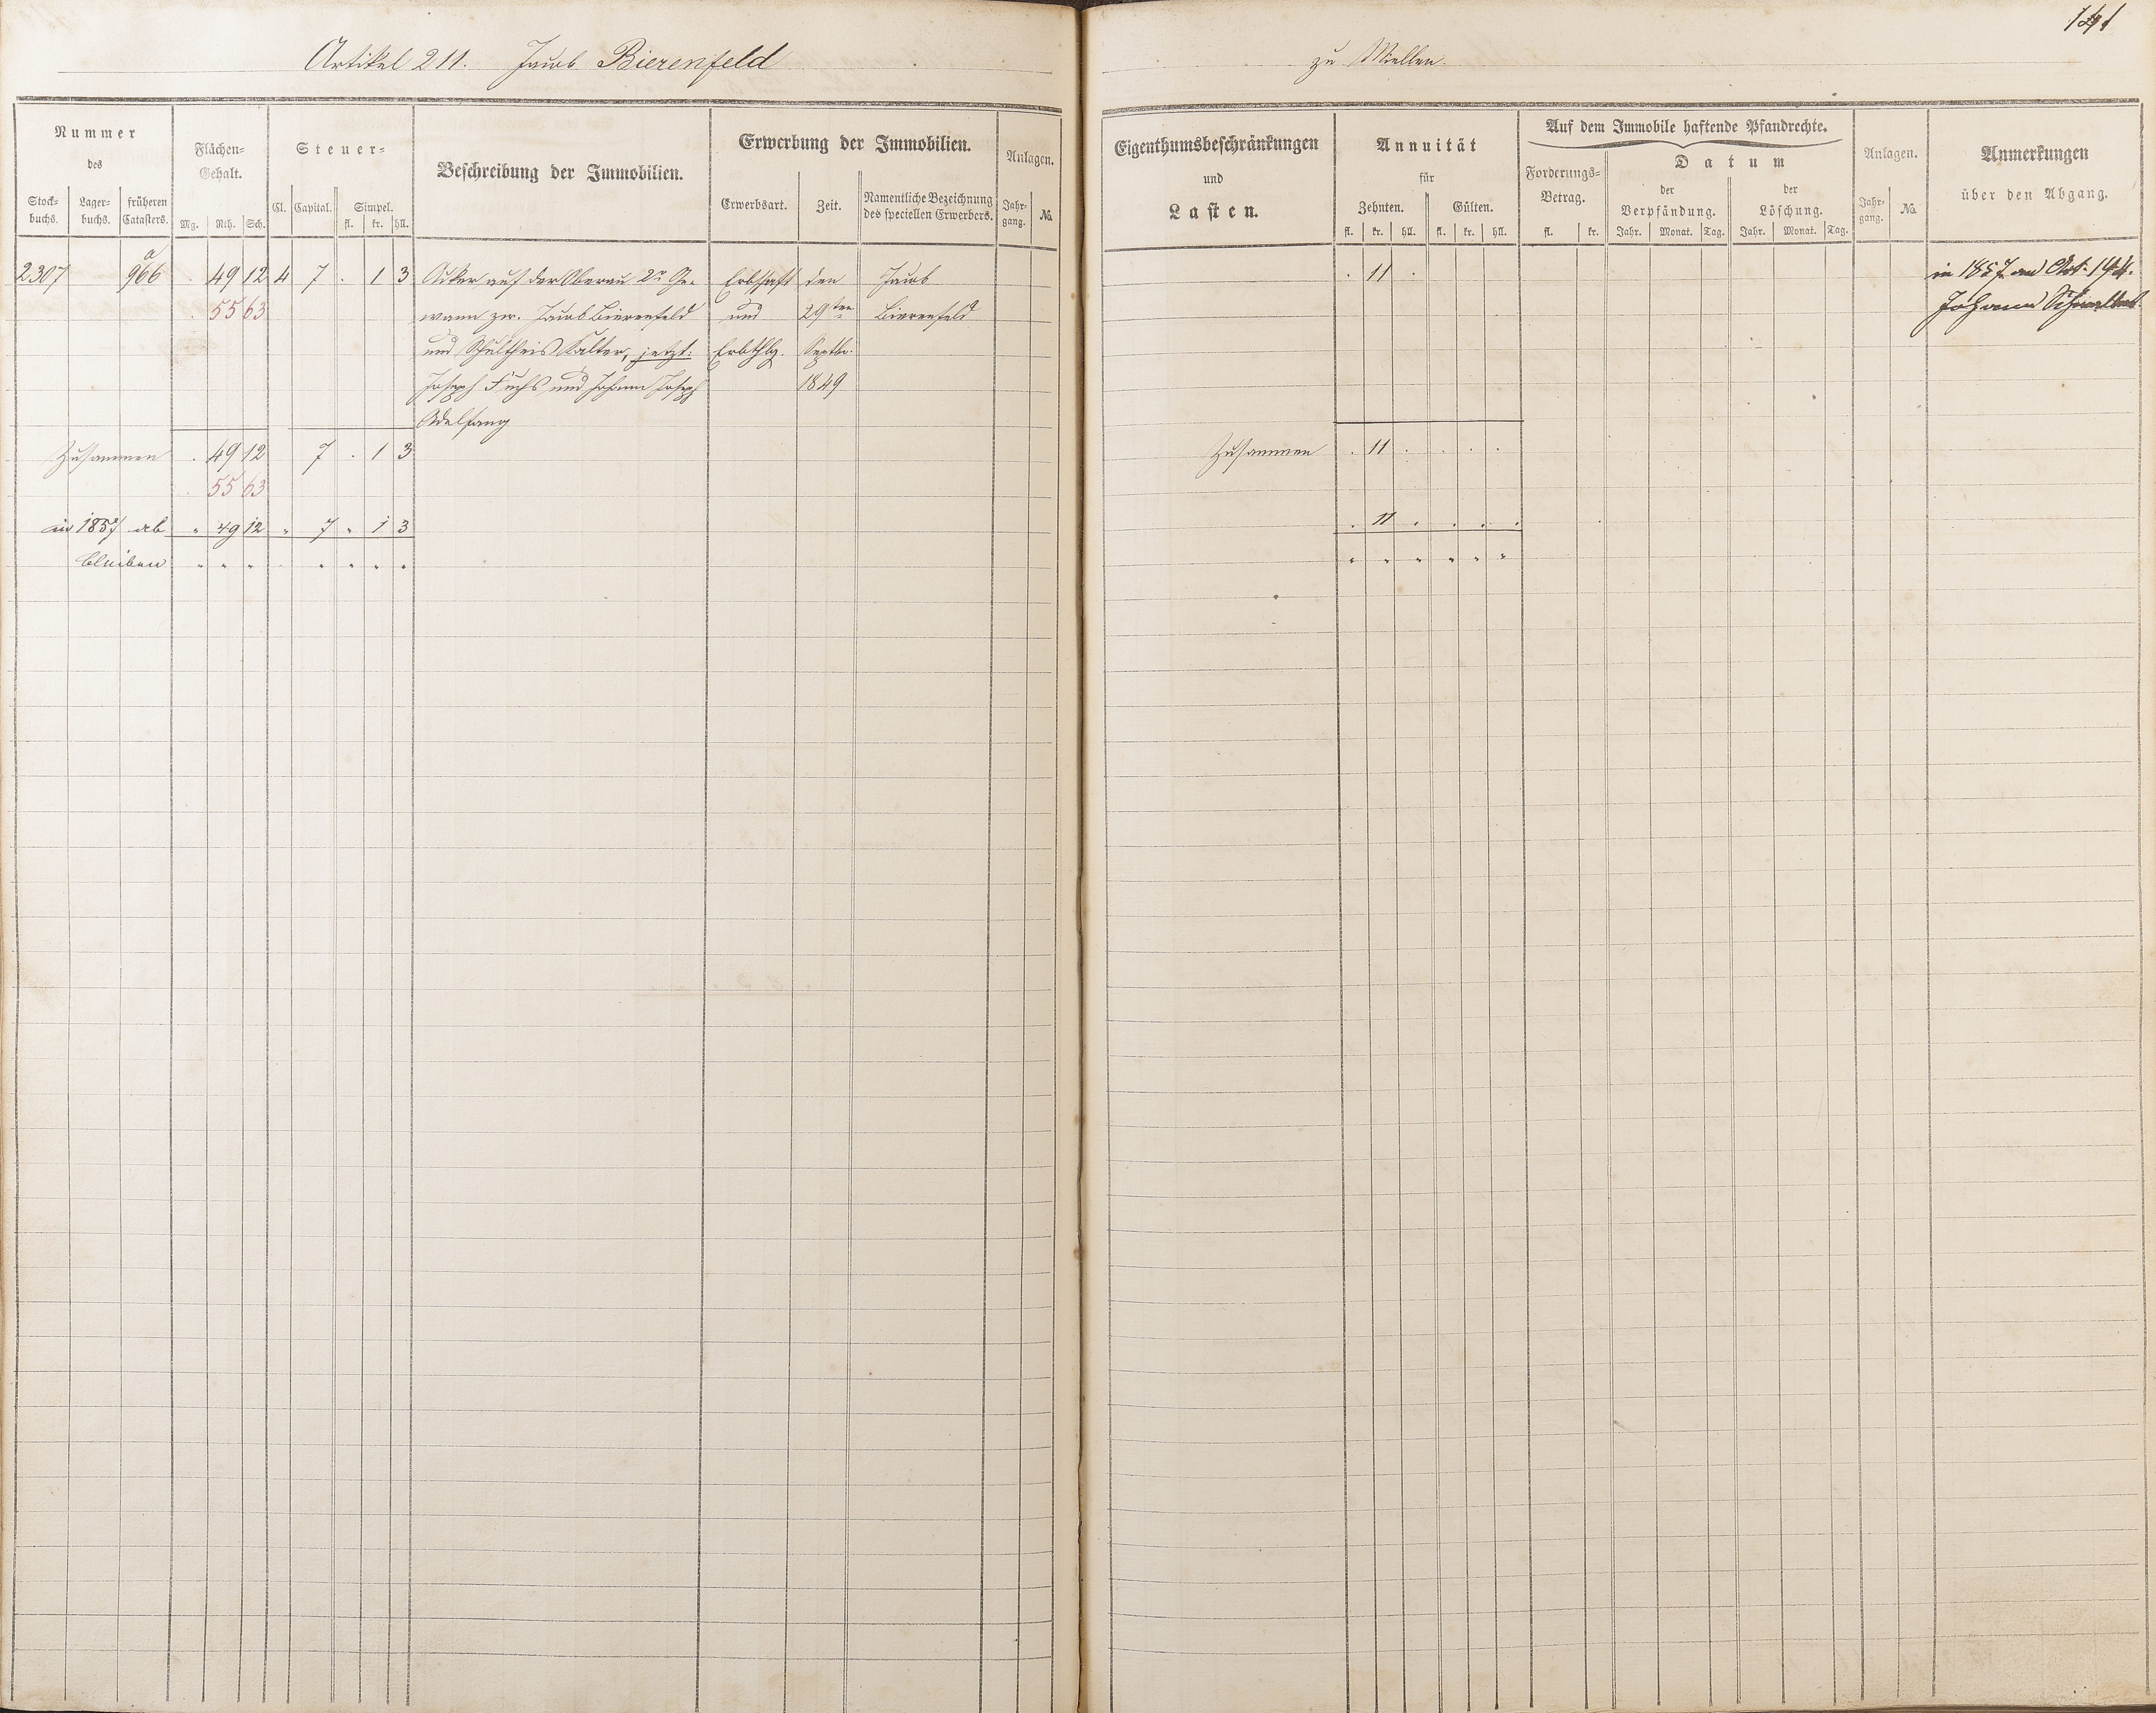 Artikel 211. Jacob Bierenfeld
Nummer
des
Stock-
buchs.
Lager-
buchs.
früheren
Catasters.
Flächen-
Gehalt.
Mg. Rth. Sch.
Steuer-
Cl. Capital. Simpel.
fl. kr. hll.
Beschreibung der Immobilien.
Erwerbung der Immobilien.
Erwerbsart. Zeit. Namentliche Bezeichnung
des speciellen Erwerbers.
Anlagen.
Jahr-
gang. No.
a
2307 966 . 49 12 4 7 . 1 3 Acker auf der Oberau 2r Ge- Erbschaft den Jacob
. 55 63 wann zw. Jacob Bierenfeld und 29ten Bierenfeld
und Schultheis Kalter, jetzt: Erbthlg. Septbr.
Joseph Fuchs und Johann Joseph 1849
Adelfang
Zusammen . 49 12 7 . 1 3
. 55 63
in 1857 ab " 49 12 " 7 " 1 3
bleiben " " " " " " "
141
zu Miellen.
Eigenthumsbeschränkungen
und
Lasten.
Annuität
für
Zehnten. Gülten.
fl. kr. hll. fl. kr. hll.
Auf dem Immobile haftende Pfandrechte.
Forderungs-
Betrag.
fl. kr.
Datum
der
Verpfändung.
Jahr. Monat. Tag.
der
Löschung.
Jahr. Monat. Tag.
Anlagen.
Jahr-
gang. No.
Anmerkungen
über den Abgang.
. 11 . in 1857 an Art. 194.
Johann
Zusammen . 11 . . . .
. 11 . . . .
" " " " " "